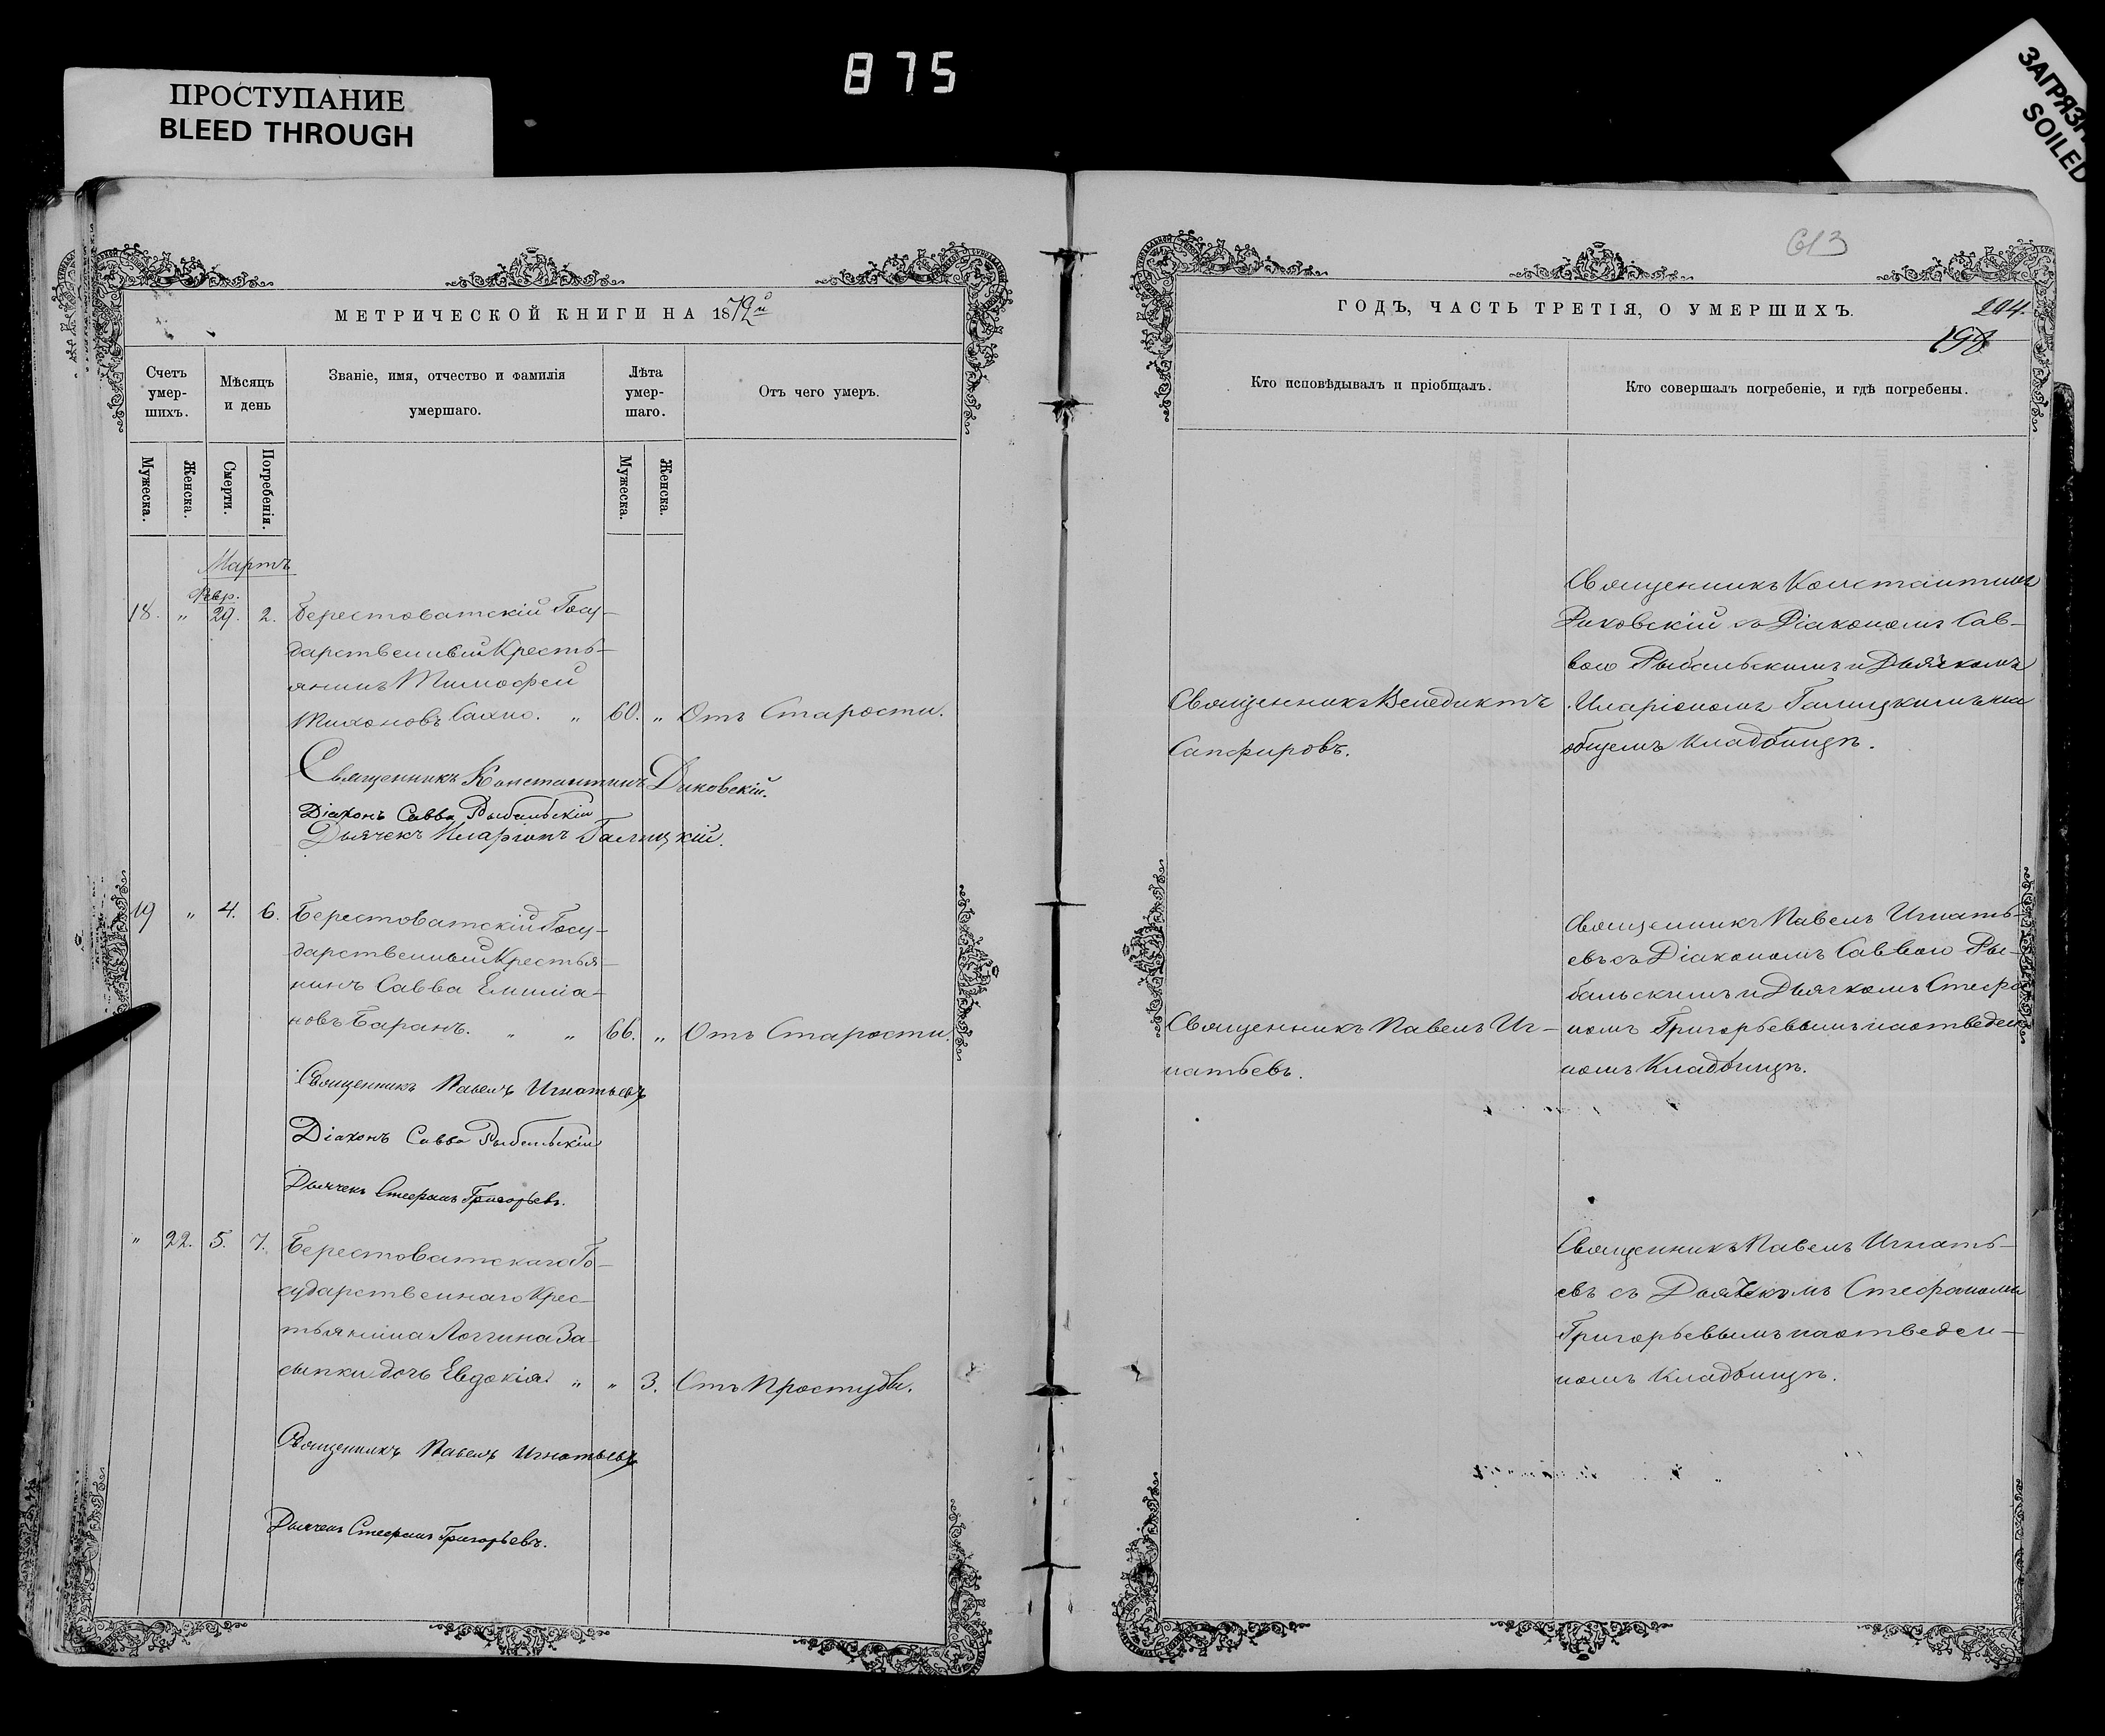 875
ПРОСТУПАНИЕ
BLEED THROUGH
SOILED
МЕТРИЧЕСКОЙ КНИГИ НА 1872й
Счетъ умер-шихъ.
Мѣсяцъ и день
Званіе, имя, отчество и фамилія умершаго.
Лѣта умер-шаго.
Отъ чего умеръ.
Мужеска.
Женска.
Смерти.
Погребенія.
Мужеска.
Женска.
Мартъ
Февр.
18. „ 29. 2. Берестоватскій Госу-
дарственный Кресть-
янинъ Тимофей
Тихоновъ Сахно. „ 60. „ Отъ Старости.
Священникъ Константинъ Диковскій.
Діаконъ Савва Рыбальскій
Дьячекъ Иларіонъ Галицкій.
19 „ 4. 6. Берестоватскій Госу-
дарственный Крестья-
нинъ Савва Емилiа-
новъ Баранъ. „ „ 66. „ Отъ Старости.
Священникъ Павелъ Игнатьевъ
Діаконъ Савва Рыбальскій
Дьячекъ Стефанъ Григорьевъ.
„ 22. 5. 7. Берестоватскаго Го-
сударственнаго Крес-
тьянина Логгина За-
сыпки дочь Евдокія. „ „ 3. Отъ Простуды.
Священникъ Павелъ Игнатьевъ
Дьячекъ Стефанъ Григорьевъ.
613
ГОДЪ, ЧАСТЬ ТРЕТІЯ, О УМЕРШИХЪ.
204.
198
Кто исповѣдывалъ и пріобщалъ.
Кто совершалъ погребеніе, и гдѣ погребены.
Священникъ Константинъ
Диковскій съ Діакономъ Сав-
вою Рыбальскимъ и Дьячкомъ
Священникъ Венедиктъ
Иларіономъ Галицкимъ на
Сапфировъ.
общемъ кладбищѣ.
Священникъ Павелъ Игнать-
евъ съ Діакономъ Саввою Ры-
бальскимъ и Дьячкомъ Стефа
Священникъ Павелъ Иг-
номъ Григорьевымъ на отведен
натьевъ.
номъ Кладбищѣ.
Священникъ Павелъ Игнать-
евъ съ Дьячкомъ Стефаномъ
Григорьевымъ на отведен-
номъ Кладбищѣ.